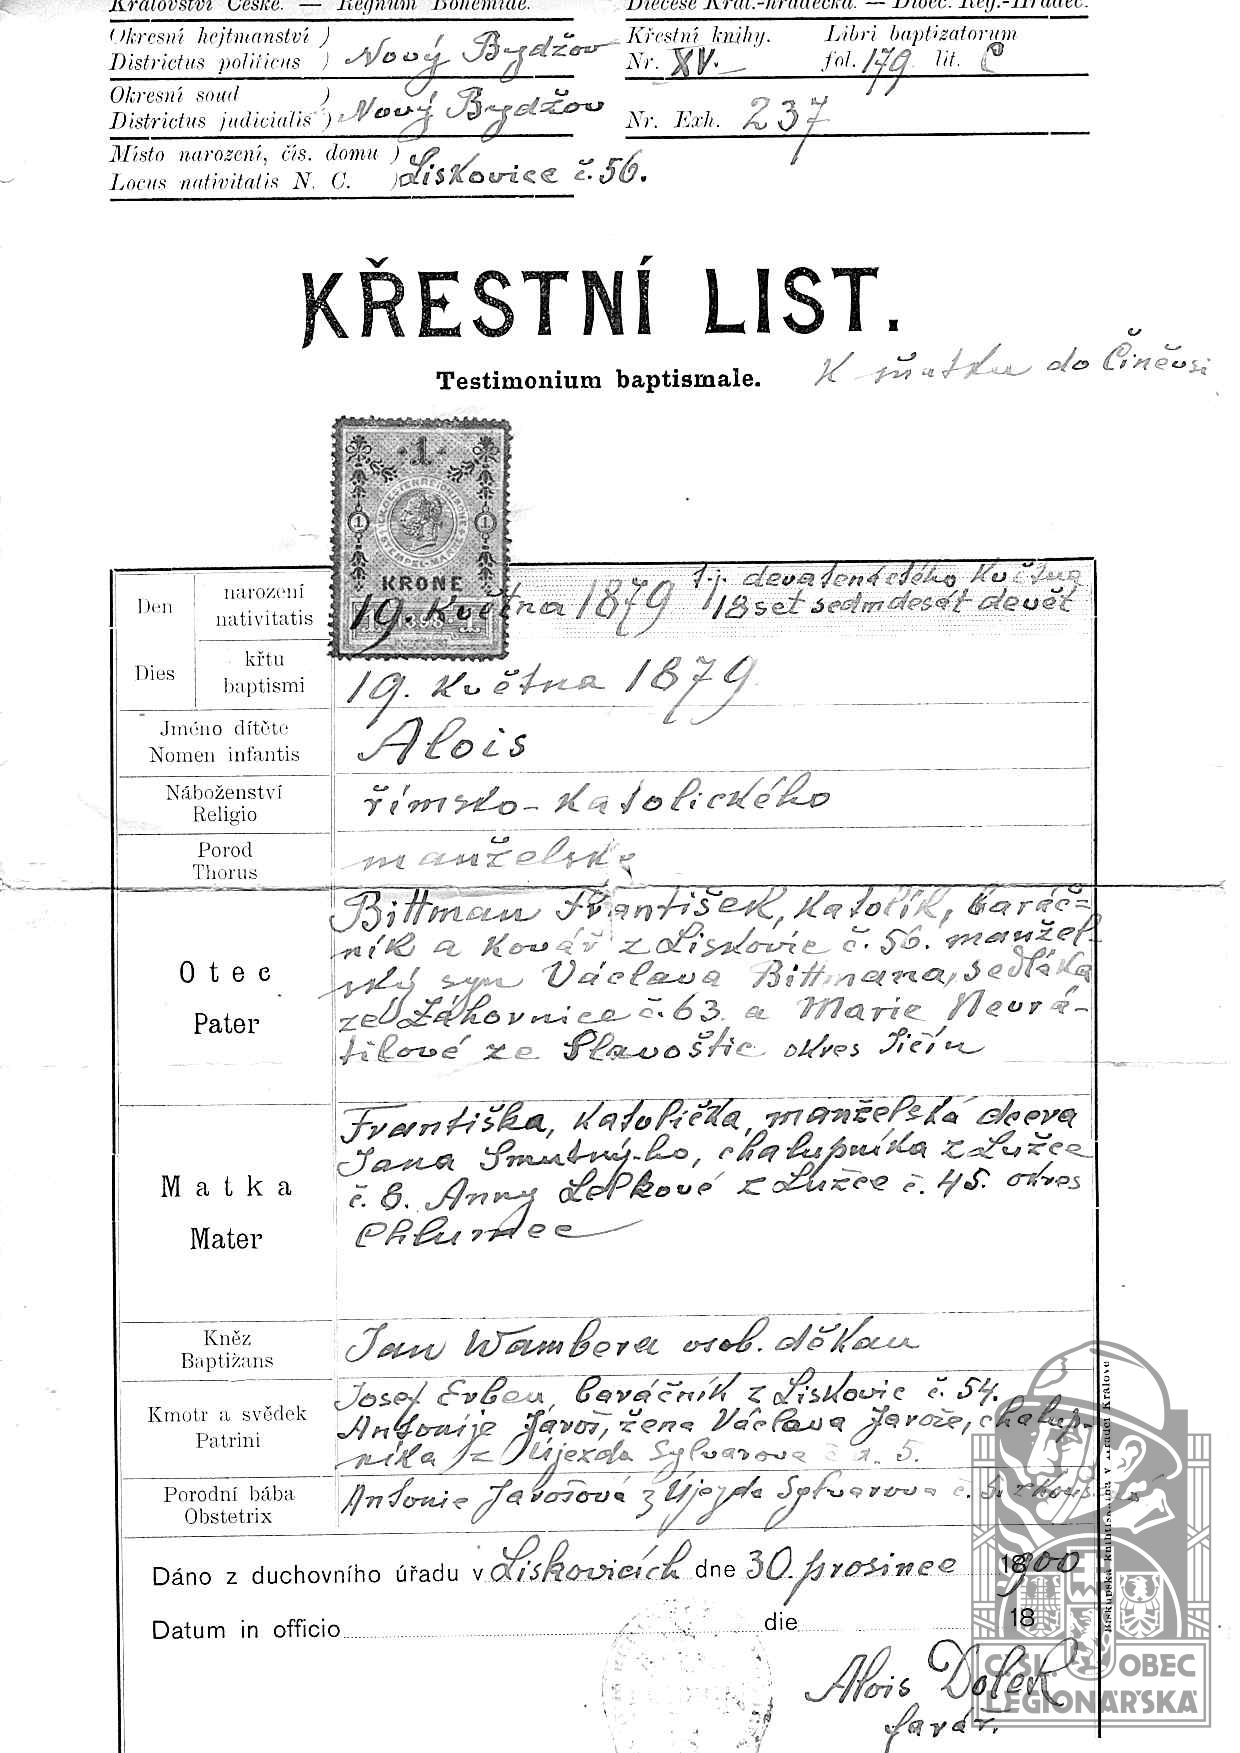 Království České. — Regnum Bohemiae. Diecése Král.-hradecká. — Dioec. Reg.-Hradec.
Okresní hejtmanství ) Křestní knihy. Libri baptizatorum
Districtus politicus ) Nový Bydžov Nr. XV. fol. 179. lit. C
Okresní soud )
Districtus judicialis ) Nový Bydžov Nr. Exh. 237
Místo narození, čís. domu )
Locus nativitatis N. C. ) Liskovice č. 56.
KŘESTNÍ LIST.
Testimonium baptismale.
K do Činěvsi
1
1 1
KRONE
1898
Den narození t.j. devatenáctého Května
nativitatis 19. Května 1879 18set sedmdesát devět
Dies křtu
baptismi 19. Května 1879.
Jméno dítěte
Nomen infantis Alois
Náboženství
Religio římsko-katolického
Porod
Thorus manželské
Otec
Pater
Bittman František, katolík, baráč-
ník a kovář z Liskovic č. 56. manžel-
ský syn Václava Bittmana, sedláka
ze Záhornice č. 63. a Marie Nevrá-
tilové ze Slavoštic okres Jičín
Matka
Mater
Františka, katolička, manželská dcera
Jana Smutný-ho, chalupníka z Lužce
č. 8. Anny Lelkové z Lužce č. 45. okres
Chlumec
Kněz
Baptižans Jan Wambera osob. děkan
Kmotr a svědek
Patrini
Josef Erben, baráčník z Liskovic č. 54.
Antonije Jaroš, žena Václava Jaroše, chalup-
níka z Újezda Sylvarova č. 5.
Porodní bába
Obstetrix Antonie Jarošová z Újezda Sylvarova č. 5.
Dáno z duchovního úřadu v Liskovicích dne 30. prosince 1900
Datum in officio die 18
Alois Dolek
farář.
Biskupská knihtiskárna v Hradci Králové
ČSL. OBEC
LEGIONÁŘSKÁ